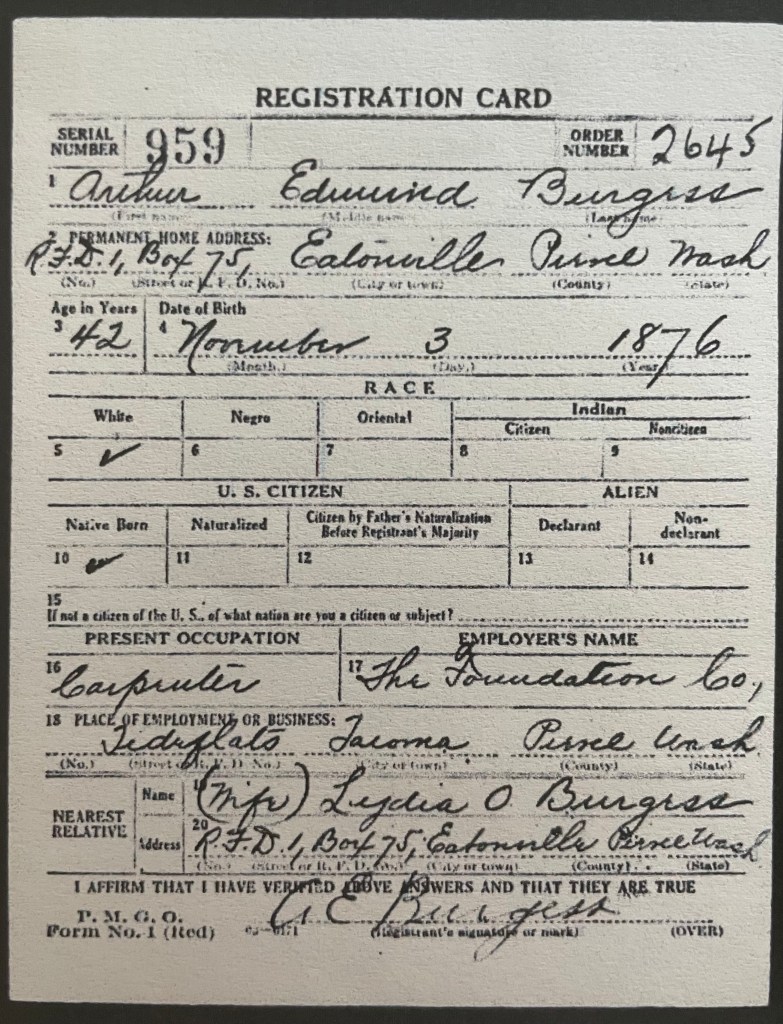 REGISTRATION CARD
SERIAL NUMBER 959 ORDER NUMBER 2645
1 Arthur Edmund Burgess
(First name) (Middle name) (Last name)
2 PERMANENT HOME ADDRESS:
R.F.D. 1, Box 75, Eatonville Pierce Wash
(No.) (Street or R. F. D. No.) (City or town) (County) (State)
Age in Years Date of Birth
3 42 4 November 3 1876
(Month.) (Day.) (Year.)
RACE
White Negro Oriental Indian
Citizen Noncitizen
5 ✓ 6 7 8 9
U. S. CITIZEN ALIEN
Native Born Naturalized Citizen by Father's Naturalization Before Registrant's Majority Declarant Non-declarant
10 ✓ 11 12 13 14
15
If not a citizen of the U. S., of what nation are you a citizen or subject?
PRESENT OCCUPATION EMPLOYER'S NAME
16 Carpenter 17 The Foundation Co.,
18 PLACE OF EMPLOYMENT OR BUSINESS:
Tideflats Tacoma Pierce Wash
(No.) (Street or R. F. D. No.) (City or town) (County) (State)
NEAREST RELATIVE
Name 19 (Wife) Lydia O. Burgess
Address 20 R.F.D. 1, Box 75, Eatonville Pierce Wash
(No.) (Street or R. F. D. No.) (City or town) (County) (State)
I AFFIRM THAT I HAVE VERIFIED ABOVE ANSWERS AND THAT THEY ARE TRUE
A E Burgess
P. M. G. O.
Form No. 1 (Red) (Registrant's signature or mark) (OVER)